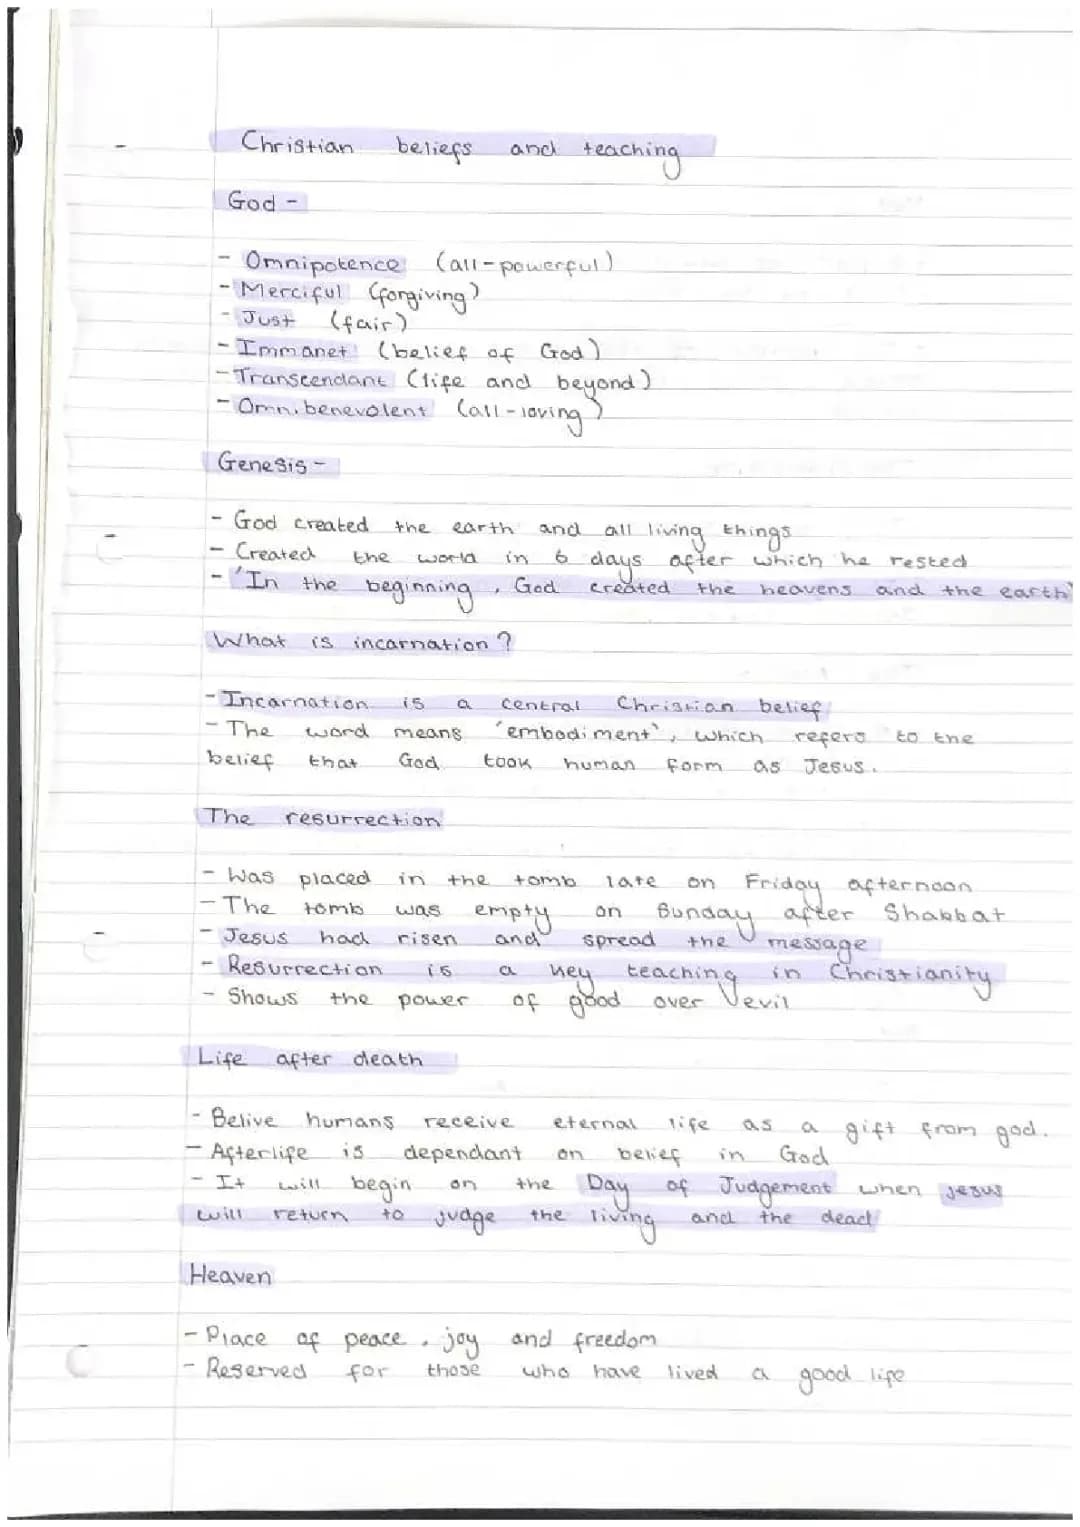 Christian beliefs and teaching
God -
- Omnipotence (all-powerful)
- Merciful (forgiving)
- Just (fair)
- Immanet (belief of God)
- Transcendant (life and beyond)
- Omnibenevolent (all-loving)
Genesis -
- God created the earth and all living things
- Created the world in 6 days after which he rested
- 'In the beginning, God created the heavens and the earth'
What is incarnation?
- Incarnation is a central Christian belief
- The word means 'embodiment', which refers to the
belief that God took human form as Jesus.
The resurrection
- Was placed in the tomb late on Friday afternoon
- The tomb was empty on Sunday after Shabbat
- Jesus had risen and spread the message
- Resurrection is a key teaching in Christianity
- Shows the power of good over evil
Life after death
- Belive humans receive eternal life as a gift from god.
- Afterlife is dependant on belief in God
- It will begin on the Day of Judgement when jesus
will return to judge the living and the dead
Heaven
- Place of peace, joy and freedom
- Reserved for those who have lived a good life